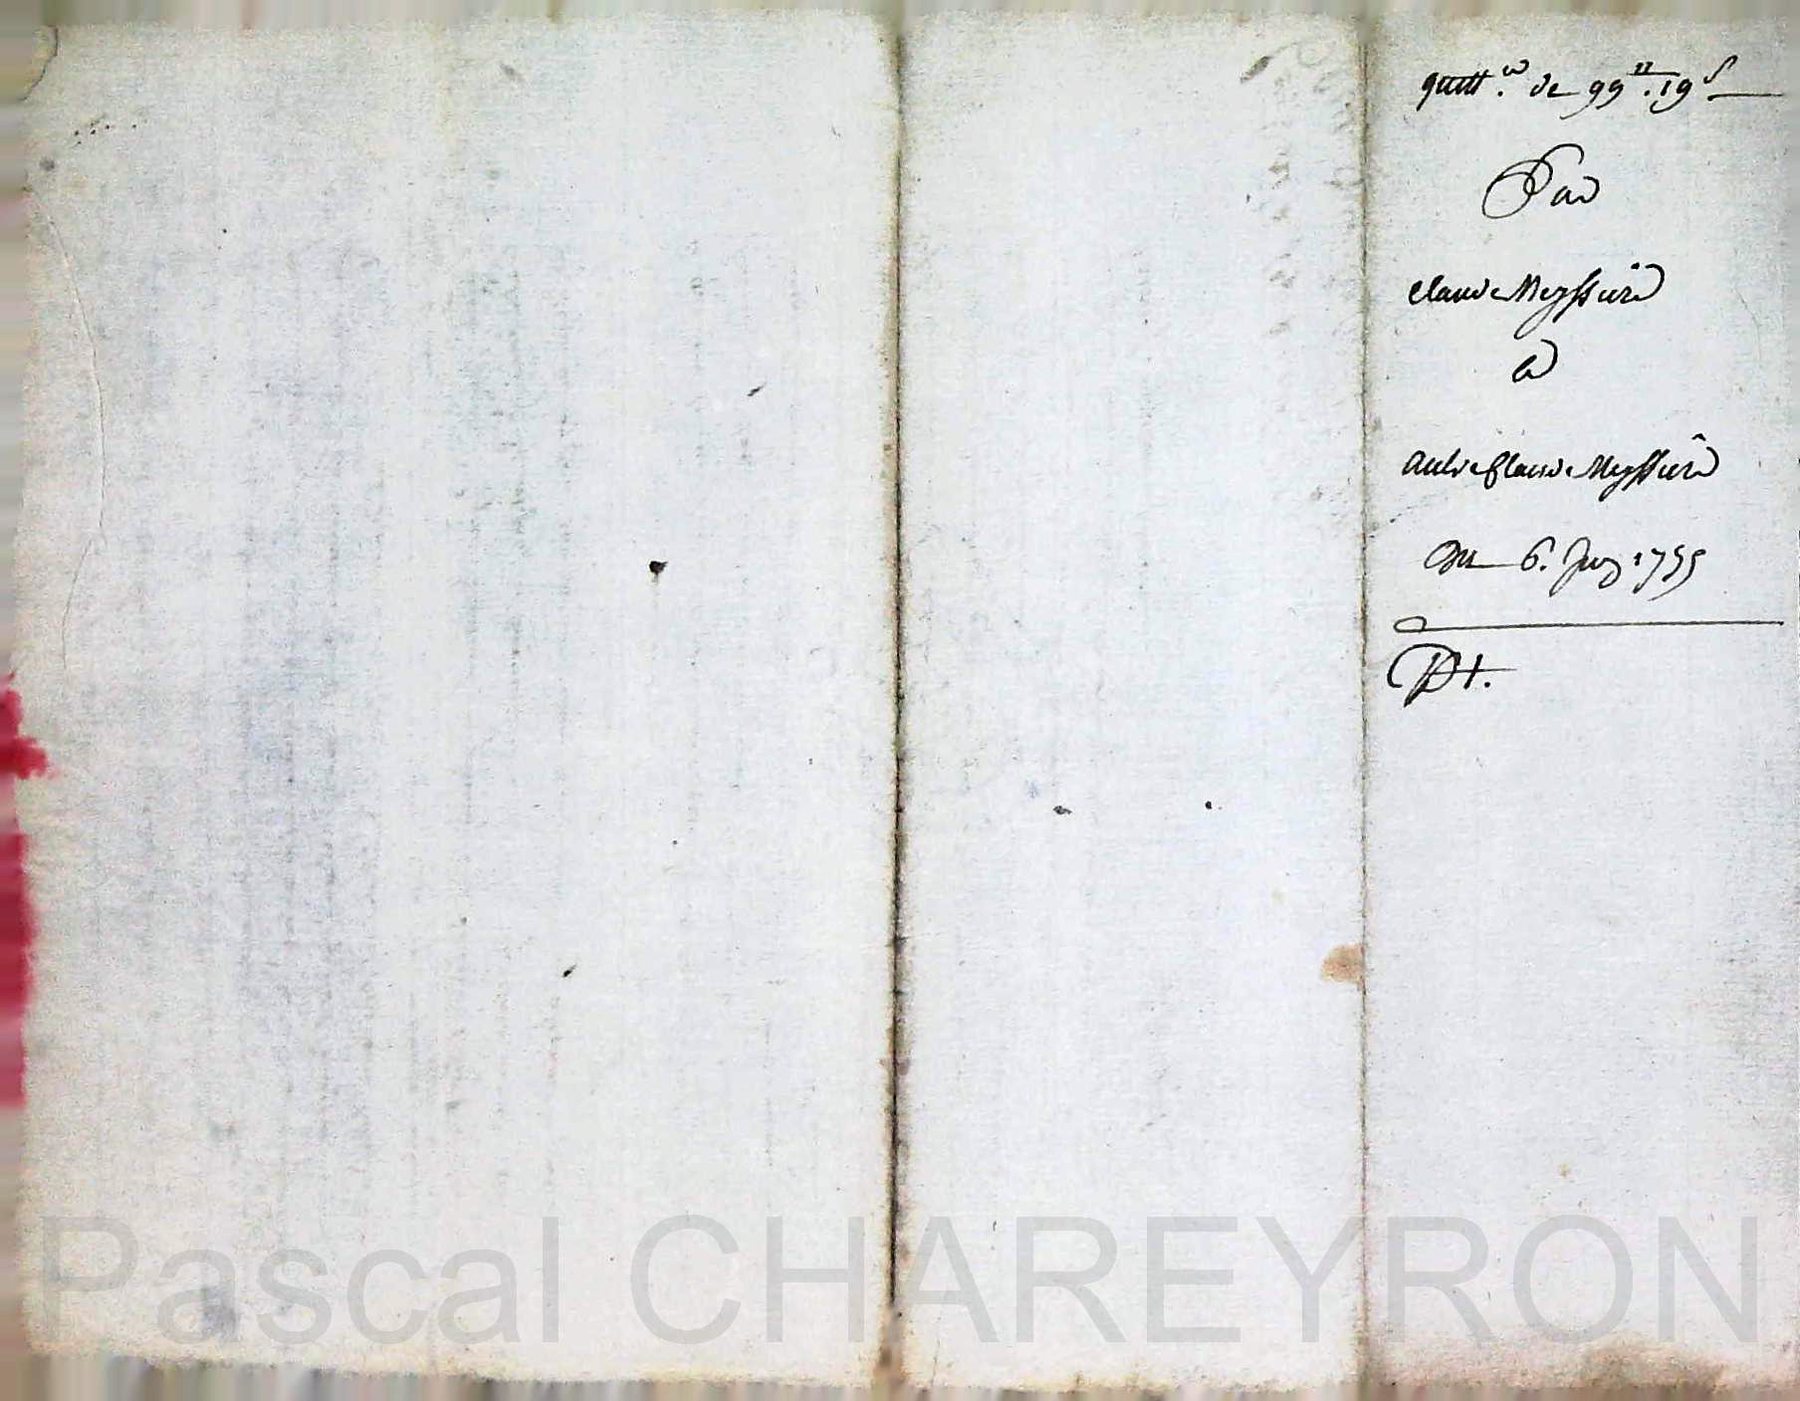 quitt.ce de 99ᵗᵗ.19ˢ
Par
claude Meyssier
a
autre Claude Meyssier
Du 6. Juin 1755
Pascal CHAREYRON